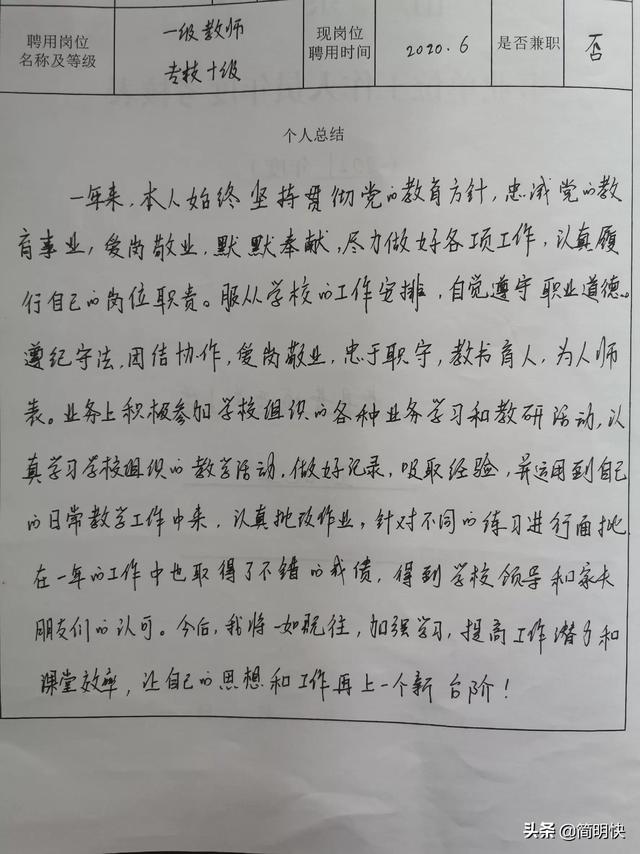 聘用岗位
名称及等级
一级教师
专技十级
现岗位
聘用时间
2020.6
是否兼职
否
个人总结
一年来，本人始终坚持贯彻党的教育方针，忠诚党的教
育事业，爱岗敬业，默默奉献，尽力做好各项工作，认真履
行自己的岗位职责。服从学校的工作安排，自觉遵守职业道德。
遵纪守法，团结协作，爱岗敬业，忠于职守，教书育人，为人师
表。业务上积极参加学校组织的各种业务学习和教研活动，认
真学习学校组织的教学活动，做好记录，吸取经验，并运用到自己
的日常教学工作中来，认真批改作业，针对不同的练习进行面批
在一年的工作中也取得了不错的成绩，得到学校领导和家长
朋友们的认可。今后，我将一如既往，加强学习，提高工作潜力和
课堂效率，让自己的思想和工作再上一个新台阶！
头条 @简明快